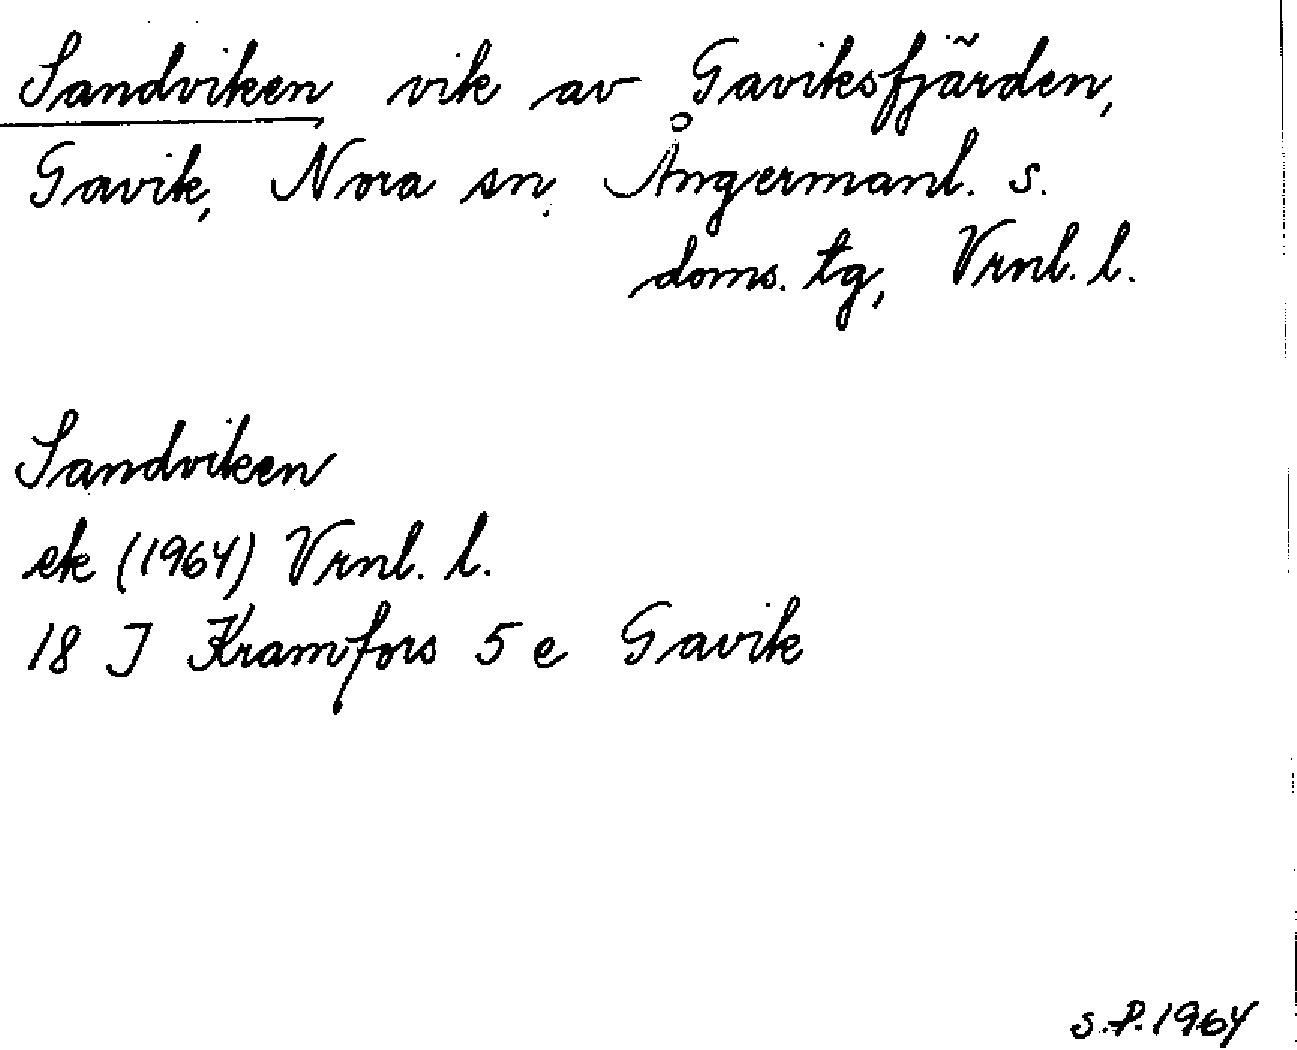 Sandviken vik av Gaviksfjärden,
Gavik, Nora sn, Ångermanl. s.
doms. tg, Vrnl. l.
Sandviken
ek (1964) Vrnl. l.
18 J Kramfors 5 e Gavik
S.P. 1964